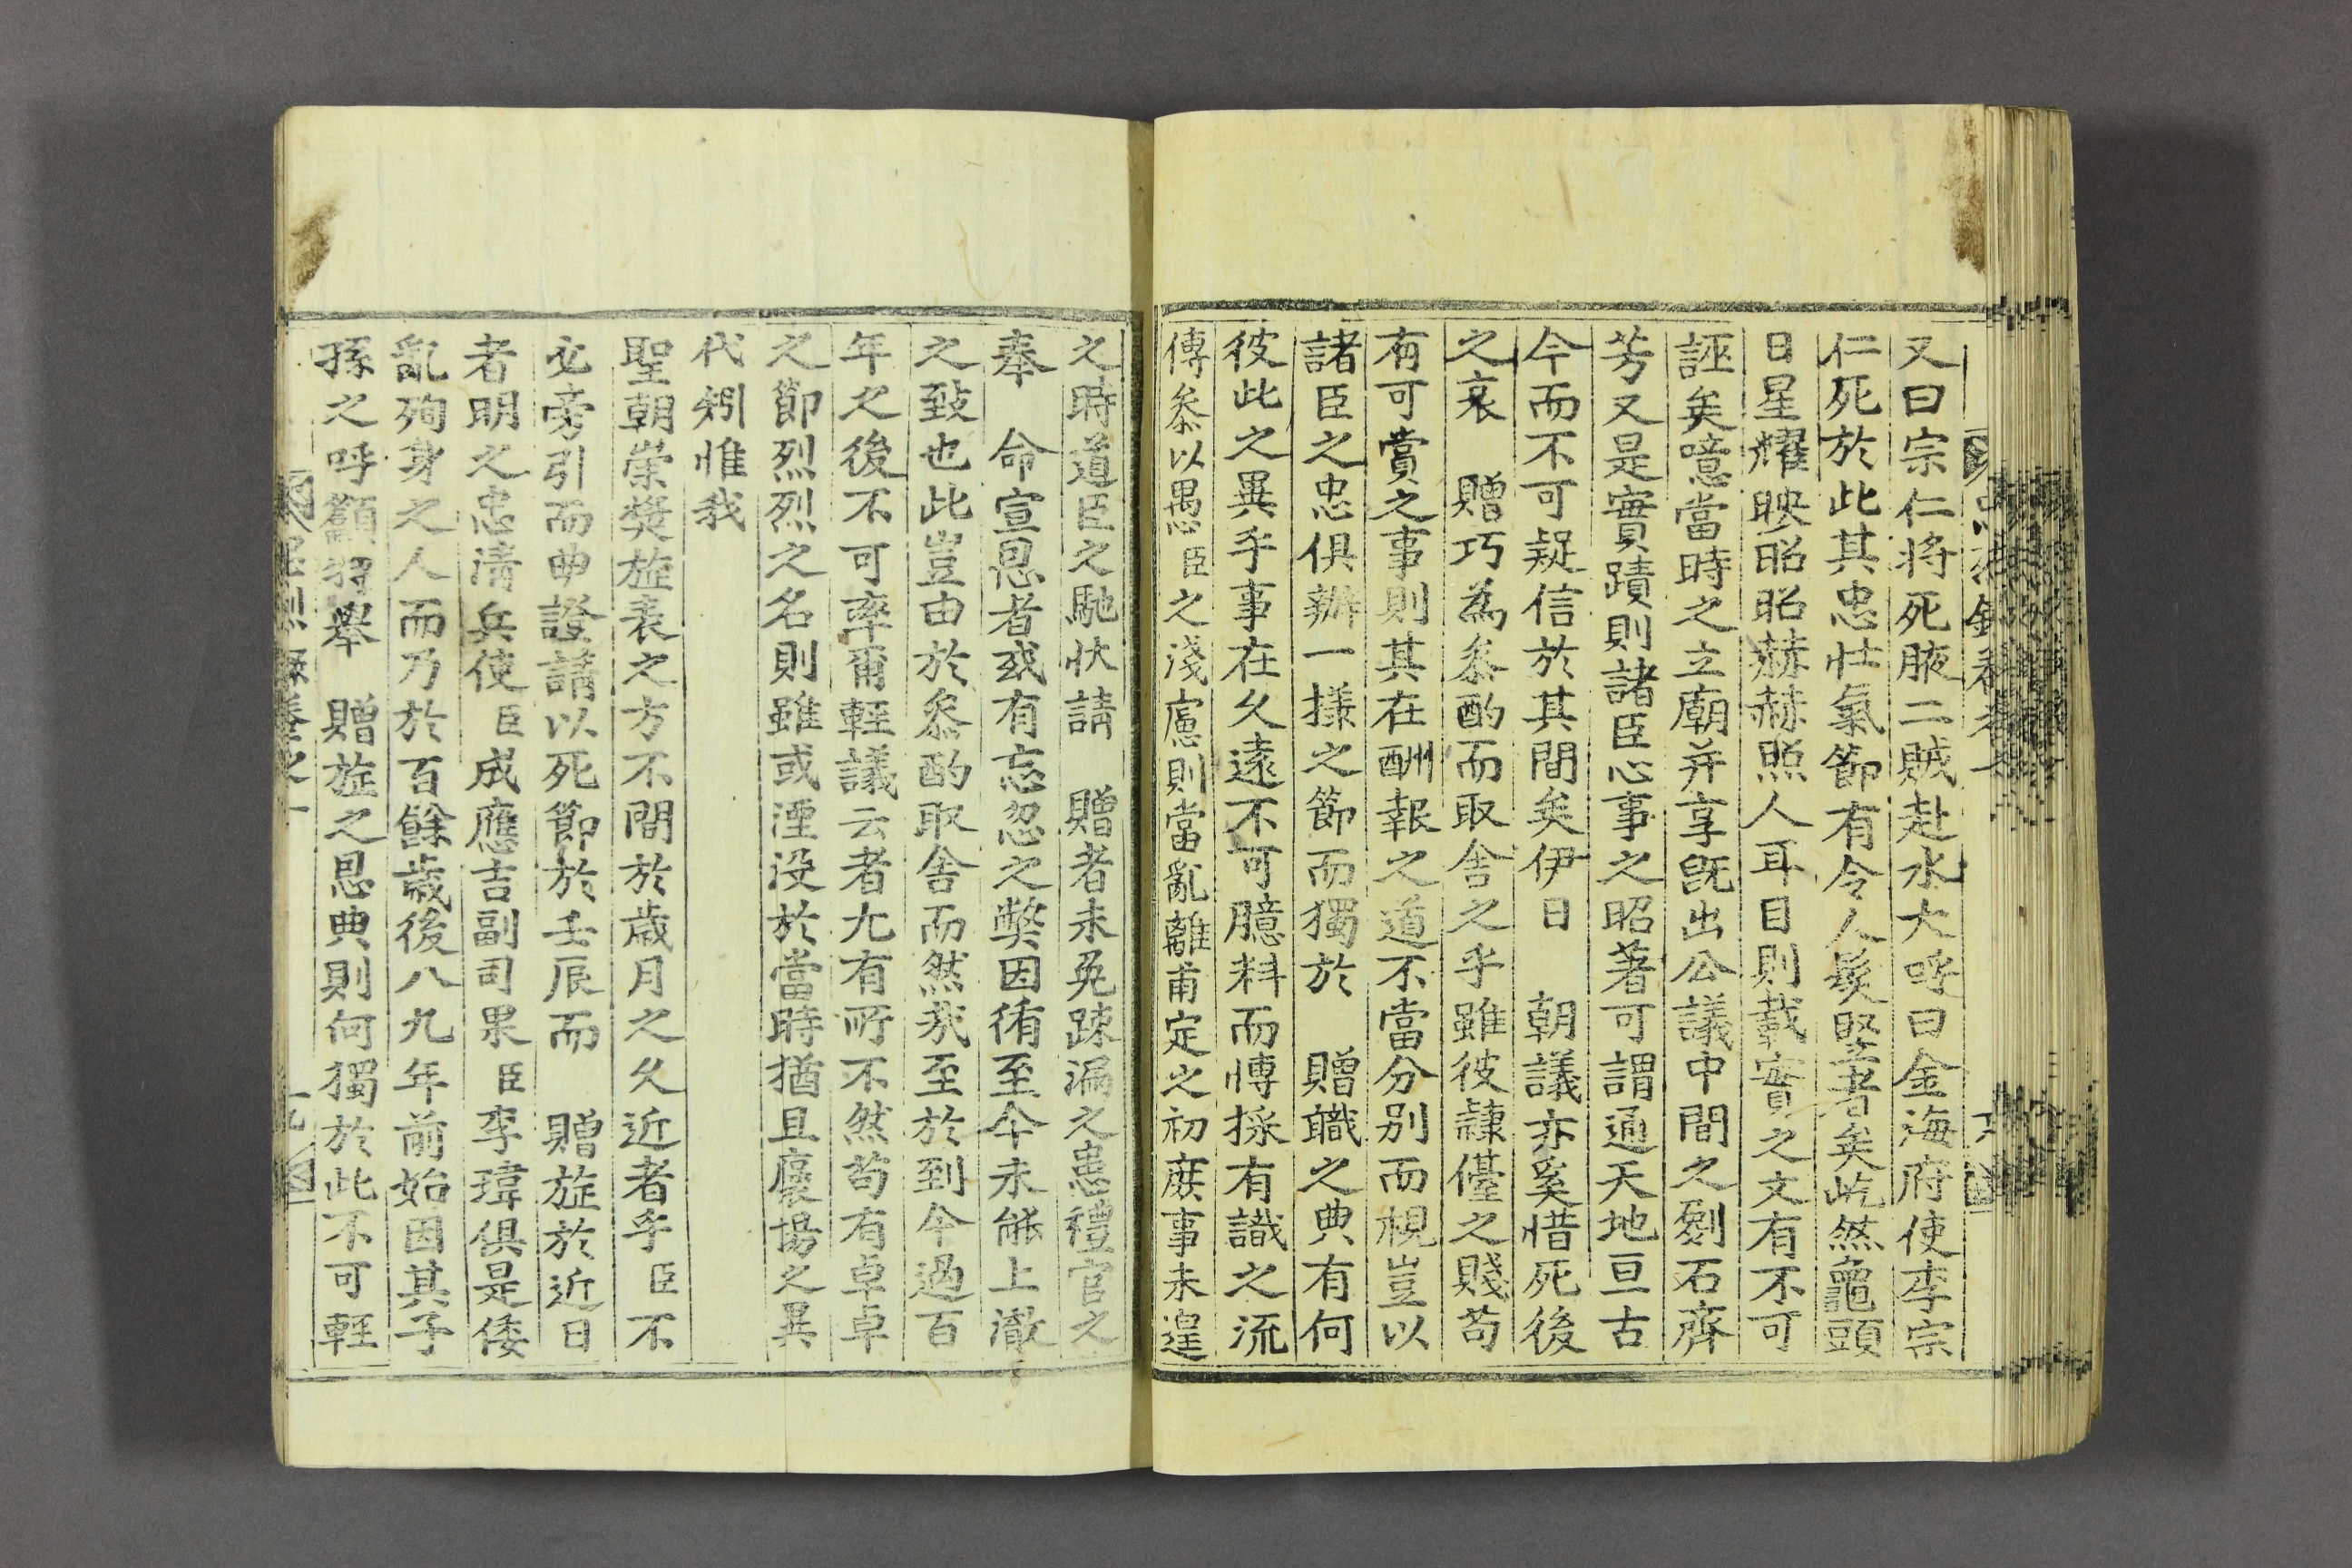 又曰宗仁将死腋二賊赴水大呼曰金海府使李宗
仁死於此其忠壮氣節有令人髮竪者矣屹然龜頭
日星耀映昭昭赫赫照人耳目則載實之文有不可
誣矣噫當時之立廟并享旣出公議中間之剡石齊
芳又是實蹟則諸臣心事之昭著可謂通天地亘古
今而不可疑信於其間矣伊日　朝議亦奚惜死後
之哀　贈巧為叅酌而取舍之乎雖彼隷儓之賤苟
有可賞之事則其在酬報之道不當分別而視豈以
諸臣之忠俱辦一㨾之節而獨於　贈職之典有何
彼此之異乎事在久遠不可臆料而博採有識之流
傳叅以愚臣之淺慮則當亂離甫定之初庶事未遑
之時道臣之馳狀請　贈者未免踈漏之患禮官之
奉　命宣恩者或有忘忽之弊因循至今未能上澈
之致也此豈由於叅酌取舍而然㢤至於到今過百
年之後不可率爾輕議云者尤有所不然苟有卓卓
之節烈烈之名則雖或湮没於當時猶且褒揚之異
代矧惟我
聖朝崇奬旌表之方不間於歲月之久近者乎臣不
必旁引而曲證請以死節於壬辰而　贈旌於近日
者明之忠清兵使臣成應吉副司果臣李瑋俱是倭
亂殉身之人而乃於百餘歲後八九年前始因其子
孫之呼籲特擧　贈旌之恩典則何獨於此不可輕